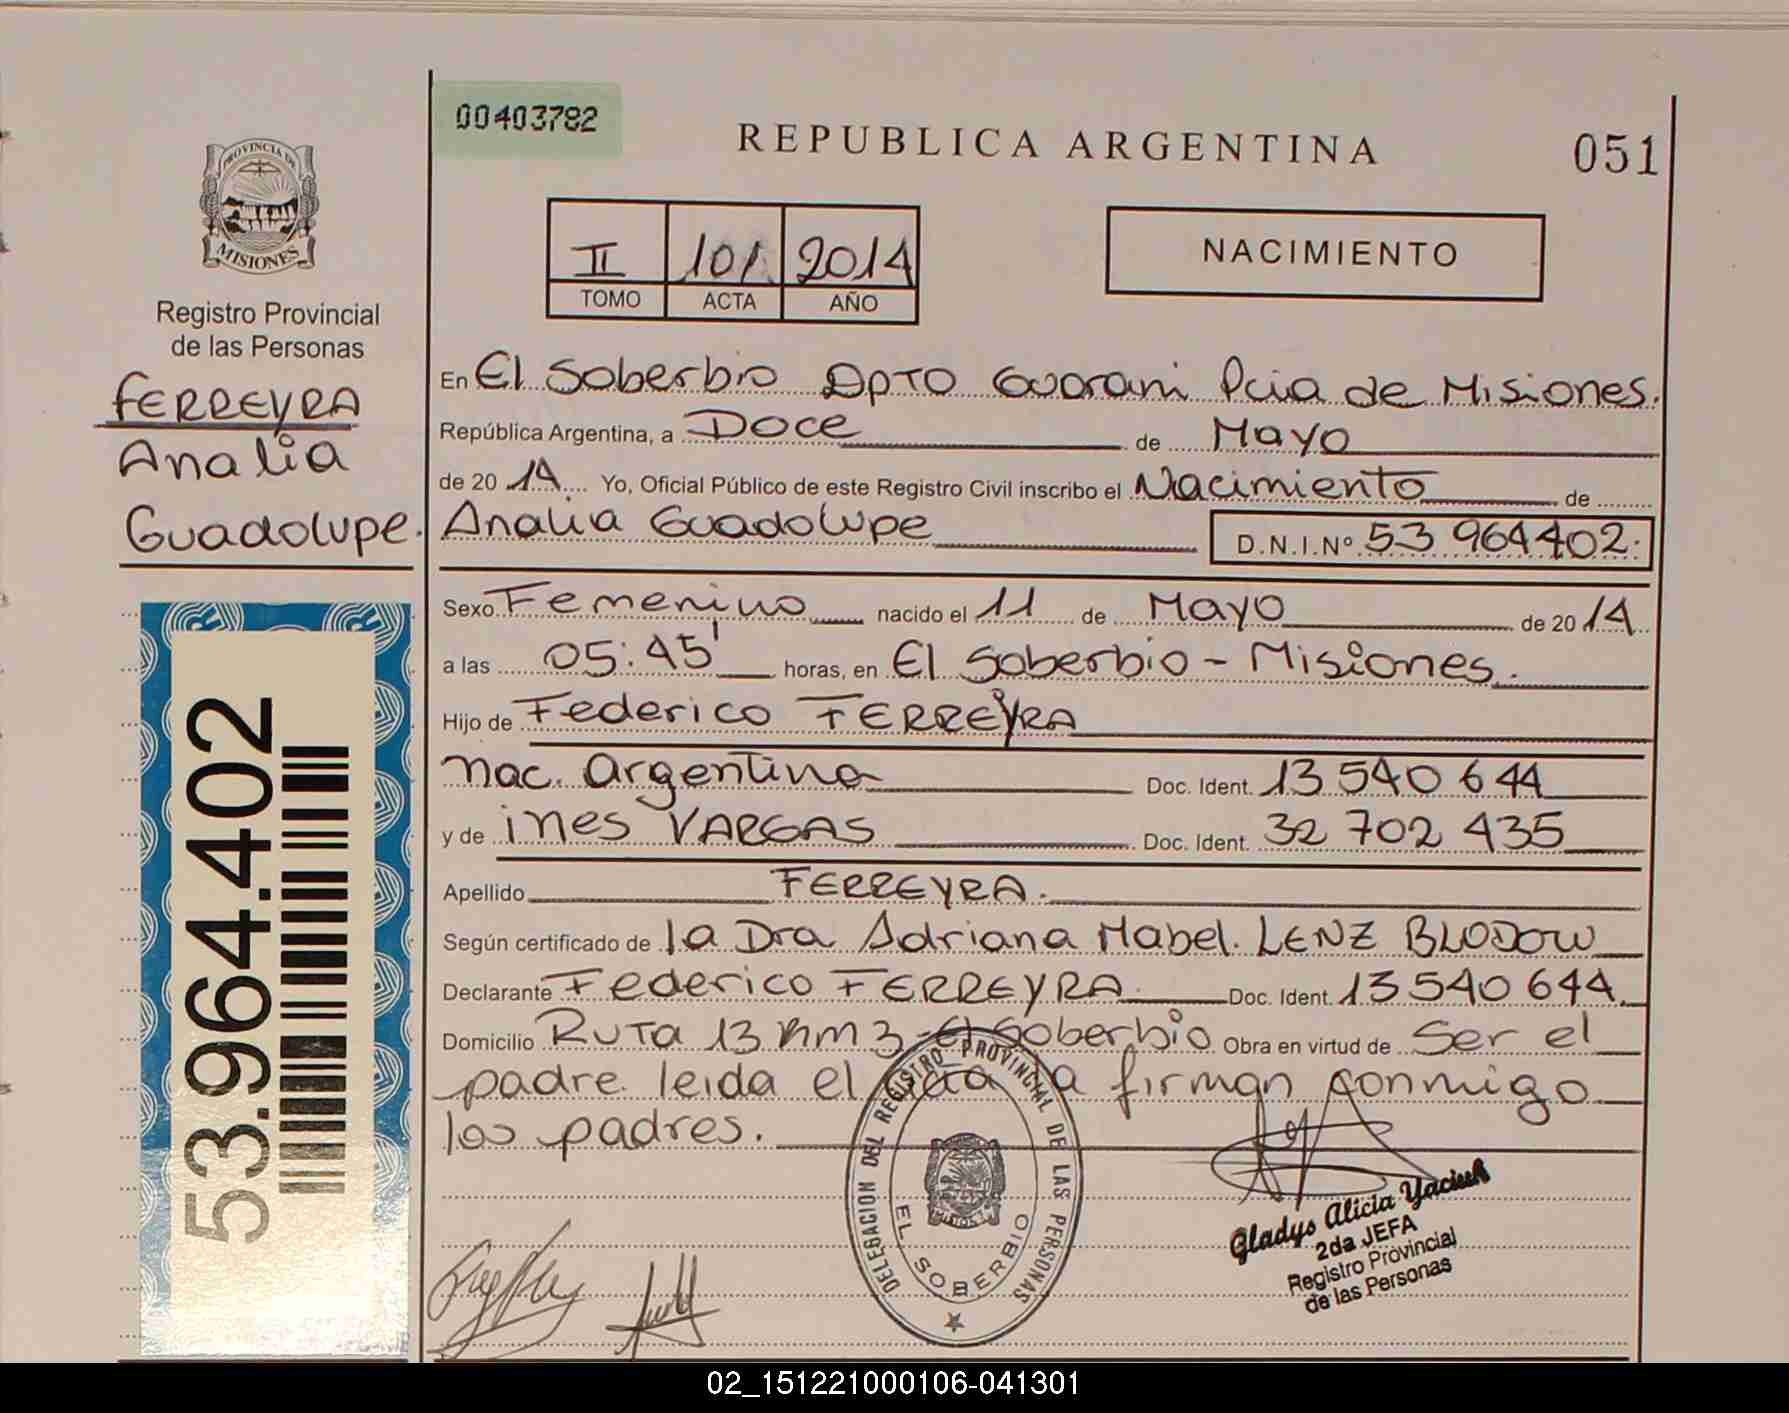 00403782
REPUBLICA ARGENTINA
051
PROVINCIA DE
MISIONES
Registro Provincial
de las Personas
FERREYRA
Analia
Guadalupe.
II 101 2014
TOMO ACTA AÑO
NACIMIENTO
En El Soberbio Dpto Guarani Pcia de Misiones.
República Argentina, a Doce de Mayo
de 2014 Yo, Oficial Público de este Registro Civil inscribo el Nacimiento de
Analia Guadalupe D.N.I.Nº 53 964402.
Sexo Femenino nacido el 11 de Mayo de 2014
a las 05:45' horas, en El Soberbio - Misiones.
Hijo de Federico FERREYRA
nac. argentina Doc. Ident. 13 540 644
y de ines VARGAS Doc. Ident. 32 702 435
Apellido FERREYRA.
Según certificado de la Dra Adriana Mabel. LENZ BLODOW
Declarante Federico FERREYRA Doc. Ident. 13 540 644.
Domicilio Ruta 13 km 3 - El Soberbio Obra en virtud de Ser el
padre. leida el acta la firman conmigo
los padres.
53.964.402
DELEGACION DEL REGISTRO PROVINCIAL DE LAS PERSONAS
EL SOBERBIO
Gladys Alicia
2da JEFA
Registro Provincial
de las Personas
02_151221000106-041301